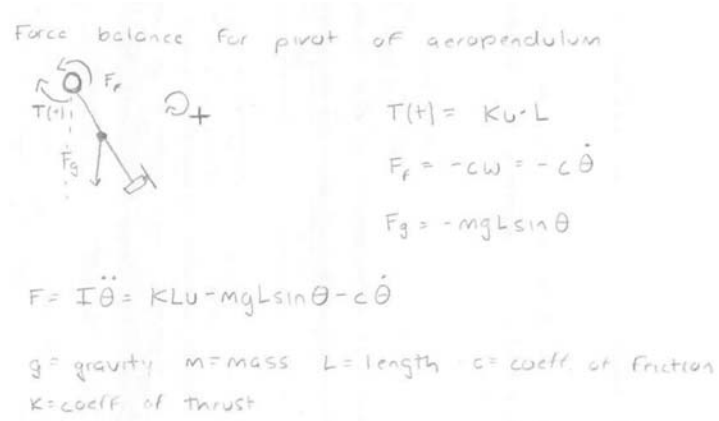 Force balance for pivot of aeropendulum
F_f
T(t)
+
F_g
T(t) = Ku·L
F_f = -cω = -cθ̇
Fg = -mgLsinθ
F = Iθ̈ = KLu-mgLsinθ-cθ̇
g= gravity m=mass L=length c= coeff. of friction
K=coeff. of thrust